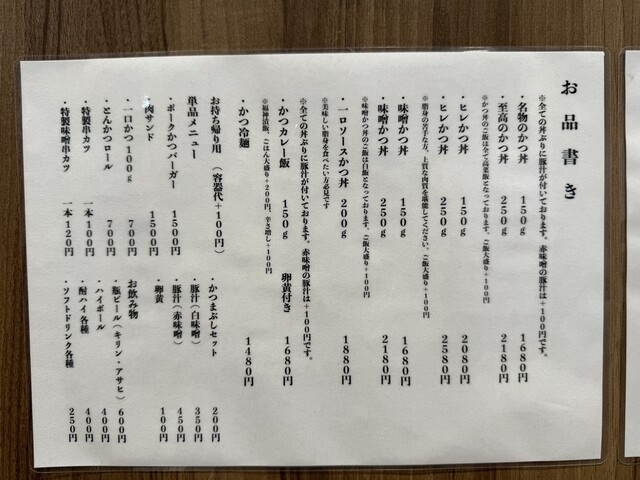 お品書き
※全ての丼ぶりに豚汁が付いております。赤味噌の豚汁は+100円です。
・名物のかつ丼 150g 1680円
・至高のかつ丼 250g 2180円
※かつ丼のご飯は全て高菜飯となっております。ご飯大盛り+100円
・ヒレかつ丼 150g 2080円
・ヒレかつ丼 250g 2580円
※脂身の苦手な方、上質な肉質を堪能してください。ご飯大盛り+100円
・味噌かつ丼 150g 1680円
・味噌かつ丼 250g 2180円
※味噌かつ丼のご飯は白飯となっております。ご飯大盛り+100円
・一口ソースかつ丼 200g 1880円
※美味しい脂身を食べたい方必見です
※全ての丼ぶりに豚汁が付いております。赤味噌の豚汁は+100円です。
・かつカレー飯 150g 卵黄付き 1680円
※福神漬飯、ごはん大盛り+200円、辛さ増し+100円
・かつ冷麺 1480円
お持ち帰り用 (容器代+100円)
単品メニュー
・ポークかつバーガー 1500円
・肉サンド 1500円
・一口かつ100g 700円
・とんかつロール 700円
・特製串カツ 一本100円
・特製味噌串カツ 一本120円
・かつまぶしセット 200円
・豚汁(白味噌) 350円
・豚汁(赤味噌) 450円
・卵黄 100円
お飲み物
・瓶ビール(キリン・アサヒ) 600円
・ハイボール 400円
・酎ハイ各種 400円
・ソフトドリンク各種 250円